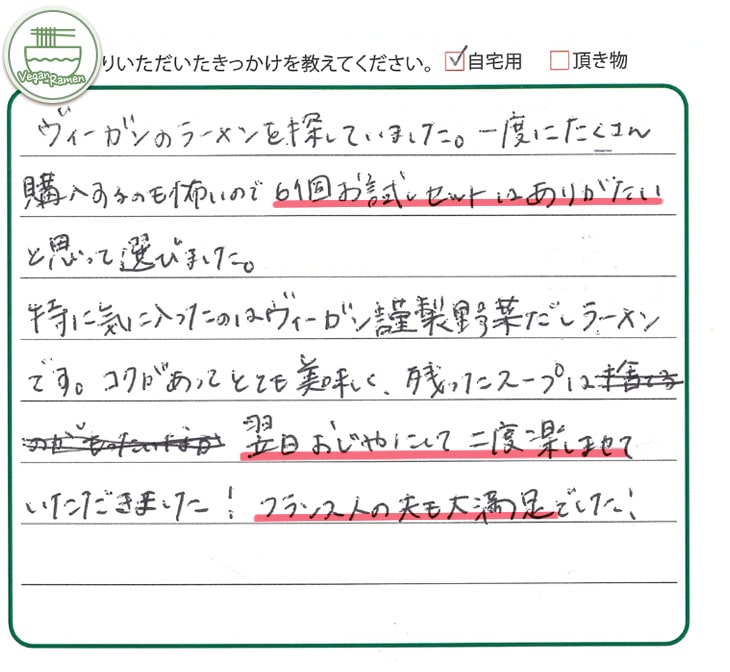 Vegan Ramen
りいただいたきっかけを教えてください。 自宅用 頂き物
ヴィーガンのラーメンを探していました。一度にたくさん
購入するのも怖いので 6個お試しセットはありがたい
と思って選びました。
特に気に入ったのはヴィーガン謹製野菜だしラーメン
です。コクがあってとても美味しく、残ったスープは捨てる
のがもったいなか 翌日おじやにして二度楽しませて
いただきました! フランス人の夫も大満足でした!